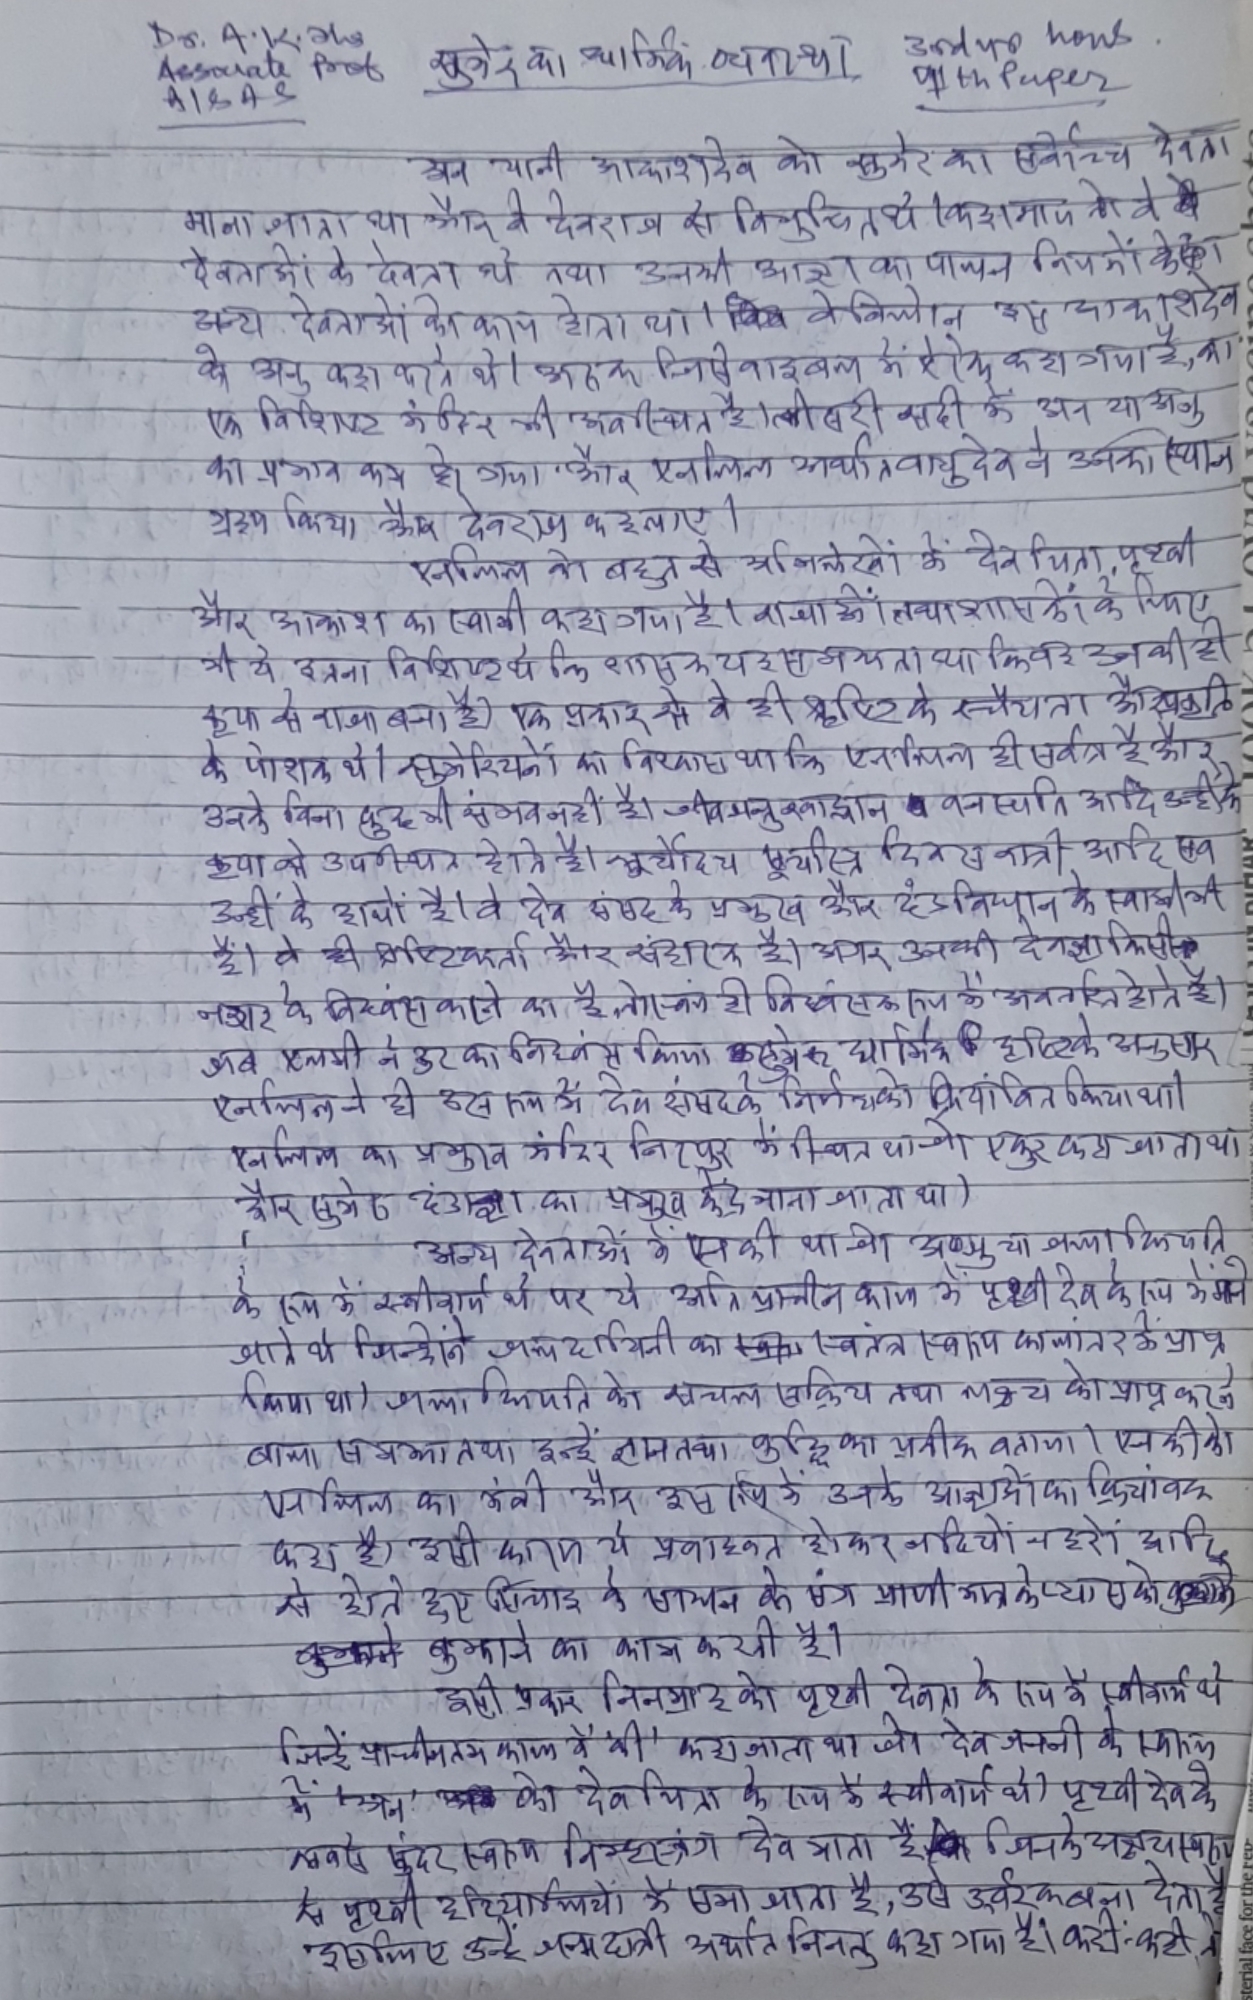 Dr. A.K. Jha
Associate Prof
सुमेर का धार्मिक व्यवस्था
3rd yr hons.
Paper
अन यानी आकाशदेव को सुमेर का सर्वोच्च देवता
माना जाता था और वे देवराज से विभुषित थे। कहा जाए तो वे
देवताओं के देवता थे तथा उनकी आज्ञा का पालन
अन्य देवताओं को काम होता था। बेबिलोन इस आकाशदेव
को अनु कहा करते थे। जिसे बाइबल में कहा गया है, का
एक विशिष्ट मंदिर भी अवस्थित है। तीसरी सदी में अन या अनु
का प्रभाव कम हो गया और एनलिल अर्थात वायुदेव ने उनका स्थान
ग्रहण किया और देवराज कहलाए।
एनलिल को बहुत से अभिलेखों में देव पिता, पृथ्वी
और आकाश का स्वामी कहा गया है। राजाओं तथा शासकों के लिए
भी ये इतना विशिष्ट थे कि शासक यह समझता था कि वह उनकी ही
कृपा से राजा बना है। एक प्रकार से वे ही सृष्टि के रचैयता और प्रकृति
के पोशक थे। सुमेरियनों का विश्वास था कि एनलिल ही सर्वत्र है और
उनके बिना कुछ भी संभव नहीं है। जीवजन्तु खाद्यान व वनस्पति आदि उन्हीं के
कृपा से उपस्थित होते है। सूर्योदय सूर्यास्त दिवस रात्री आदि सब
उन्हीं के हाथों है। वे देव संसद के प्रमुख और दंडविधान के स्वामी भी
हैं। वे ही सृष्टिकर्ता और संहारक है। अगर उनकी देवाज्ञा किसी
नगर के विध्वंस करने का है तो स्वयं ही विध्वंसक रूप में अवतरित होते है।
जब एलमी ने उर का विध्वंस किया सुमेरु धार्मिक दृष्टि के अनुसार
एनलिल ने ही उस रूप में देव संसद के निर्णय को क्रियांवित किया था।
एनलिल का प्रमुख मंदिर निप्पुर में स्थित था जो एकुर कहा जाता था
और सुमेर का प्रमुख केंद्र माना जाता था।
अन्य देवताओं में एनकी था जो अप्सु या जलाधिपति
के रूप में स्वीकार्य थे पर ये अति प्राचीन काल में पृथ्वी देव के रूप में माने
जाते थे जिन्होंने जलदायिनी का स्वतंत्र स्वरूप कालांतर में प्राप्त
किया था। जलाधिपति को सचल सक्रिय तथा लक्ष्य को प्राप्त करने
वाला समझा तथा इन्हें ज्ञान तथा बुद्धि का प्रतीक बताया। एनकी को
एनलिल का मंत्री और इस रूप में उनके आज्ञाओं का क्रियांवक
कहा है। इसी कारण ये प्रवाहवत होकर नदियों नहरों आदि
से होते हुए सिंचाइ के साधन के संग प्राणी मात्र के प्यास को
बुझाने का काम करती है।
इसी प्रकार निनमाह को पृथ्वी देवता के रूप में स्वीकार्य थे
जिन्हें प्राचीनतम काल में की' कहा जाता था जो देव जननी के स्वरूप
में 'अन' को देव पिता के रूप में स्वीकार्य थे। पृथ्वी देव के
सबसे सुंदर स्वरूप देव माता हैं जिनके
से पृथ्वी हरियालियों में समा जाता है, उसे उर्वरक बना देता है
इसलिए उन्हें जन्मदात्री अर्थात निनतु कहा गया है। कहीं-कहीं तो